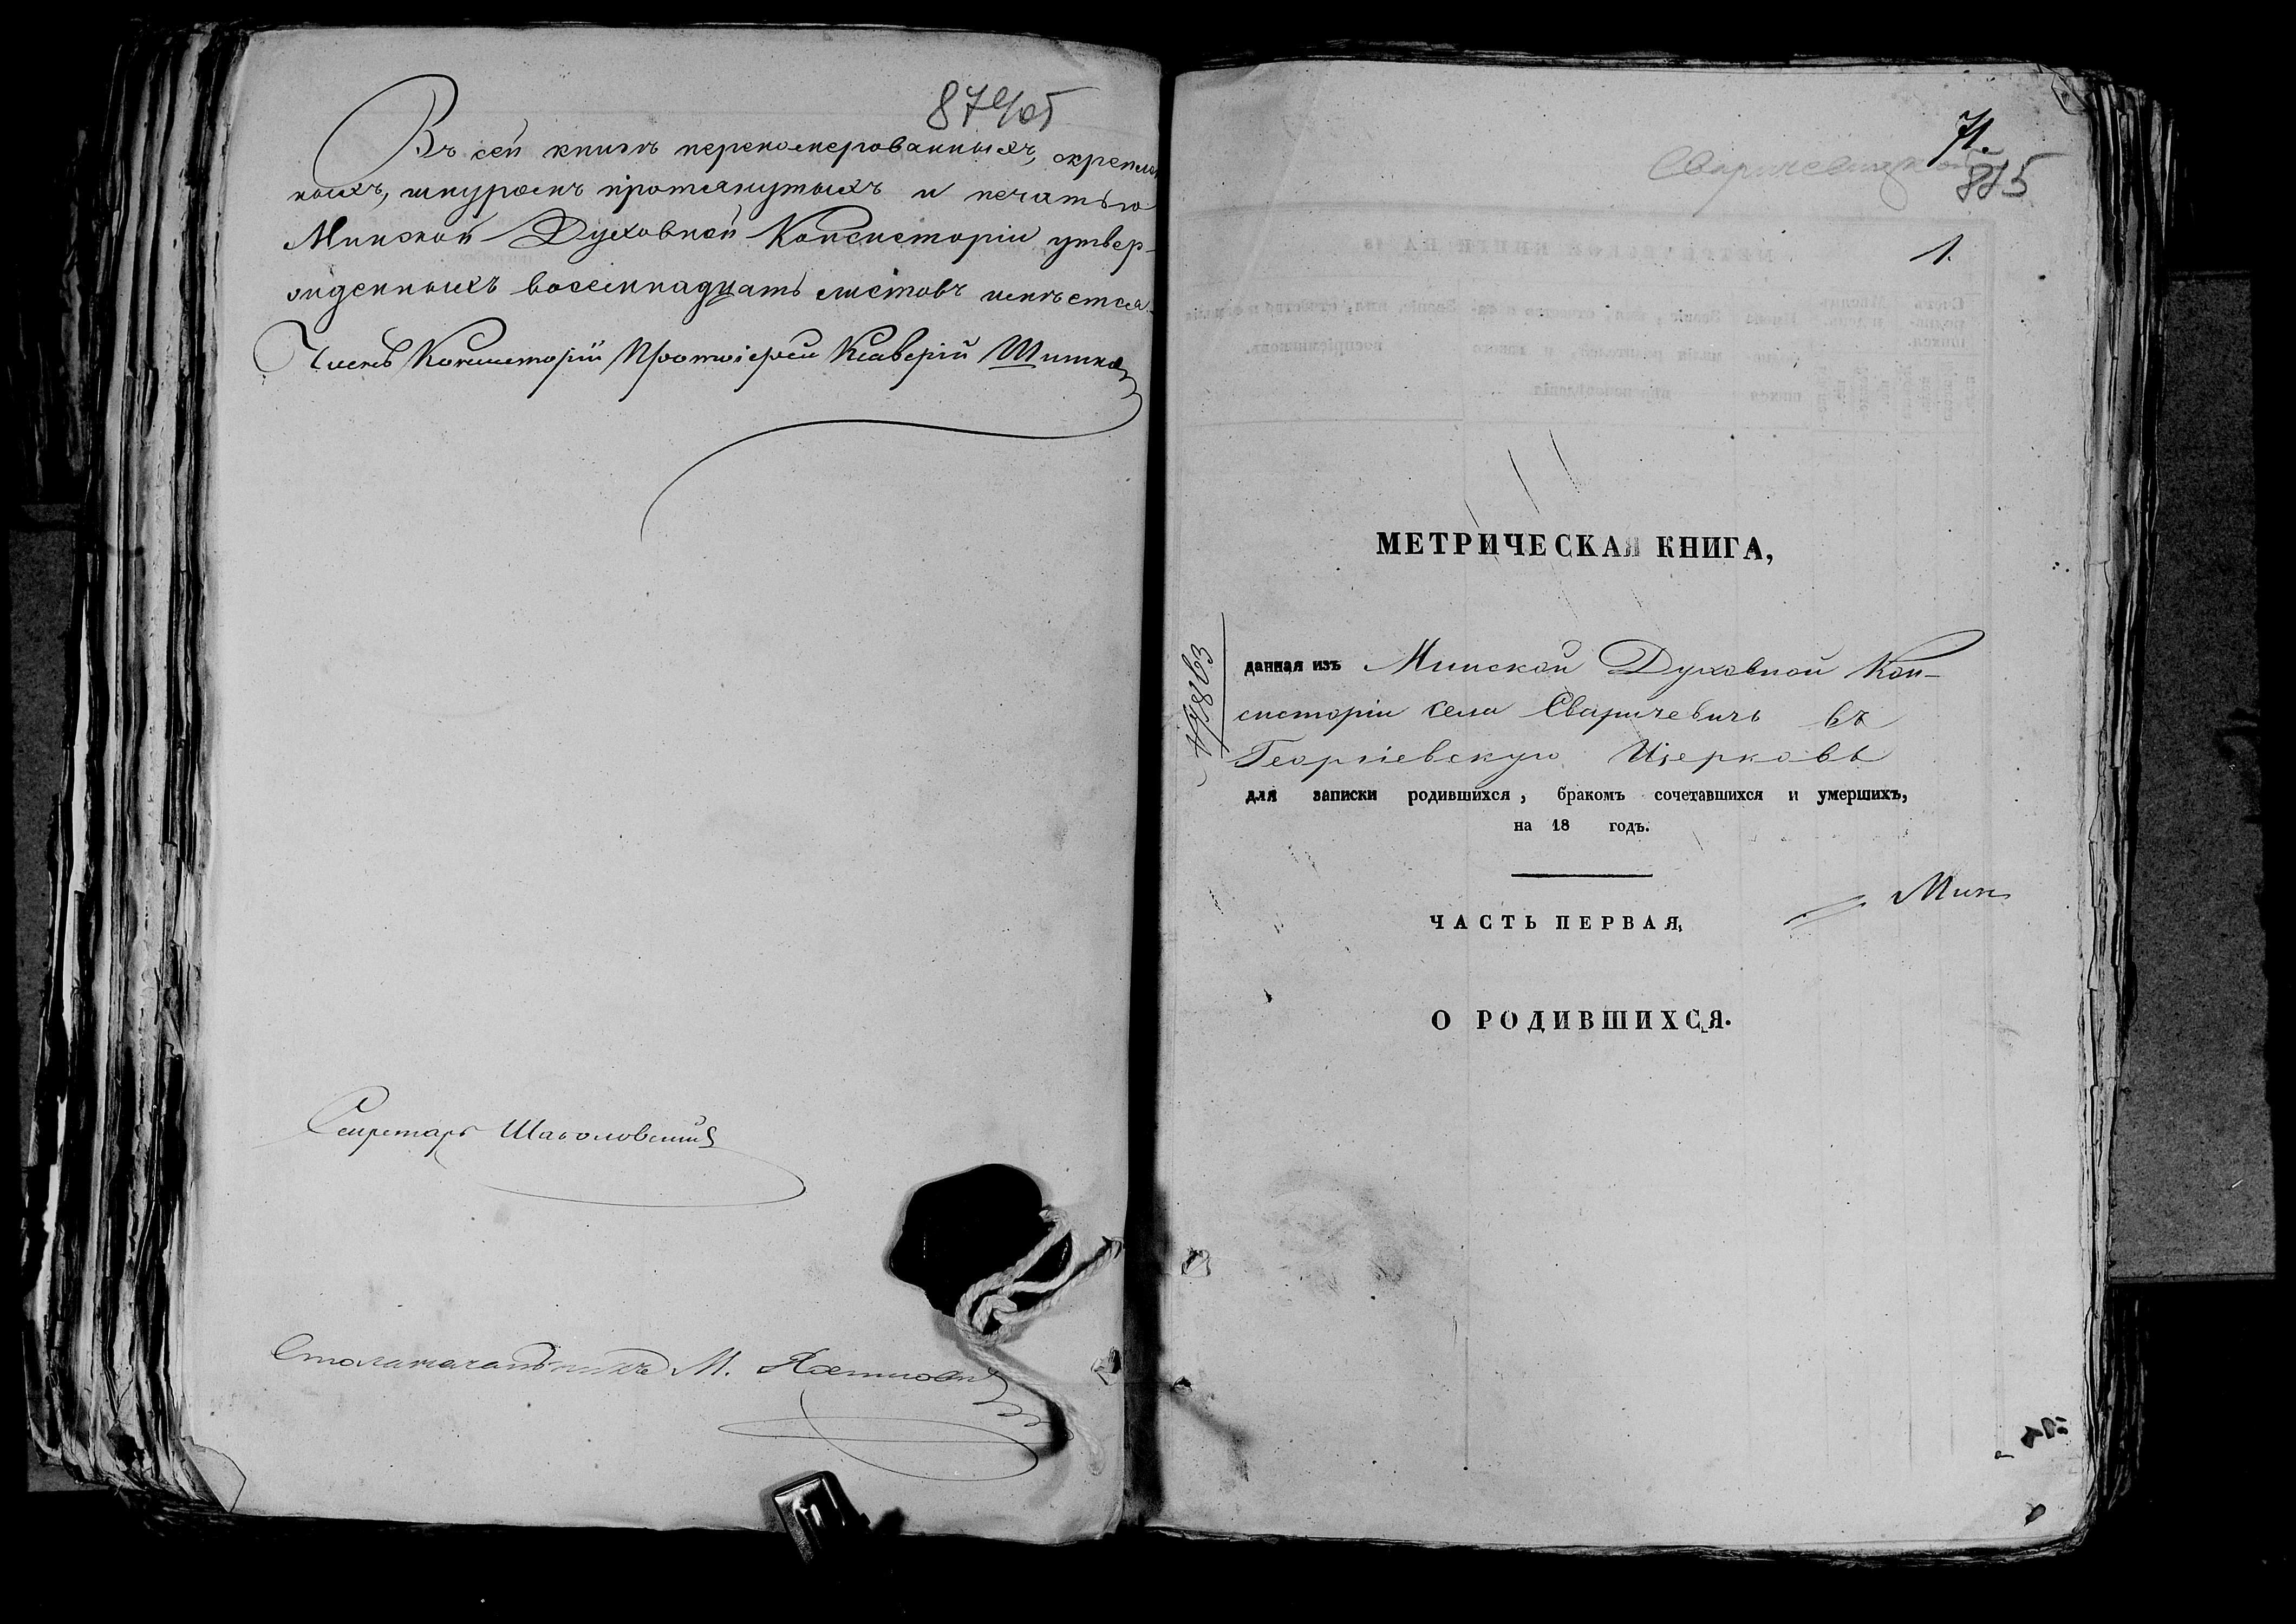 874об
Въ сей книгѣ перенумерованныхъ, скреплен
ныхъ, шнуромъ протянутыхъ и печатью
Минской Духовной Консисторіи утвер-
жденныхъ восемнадцать листовъ имѣется.
Членъ Консисторіи Протоіерей Ксаверій
Секретарь
Столоначальникъ М.
71.
875
1.
МЕТРИЧЕСКАЯ КНИГА,
данная изъ Минской Духовной Кон-
систоріи села Сваричевичь въ
Георгіевскую Церковь
для записки родившихся, бракомъ сочетавшихся и умершихъ,
на 18 годъ.
Мин
ЧАСТЬ ПЕРВАЯ,
О РОДИВШИХСЯ.